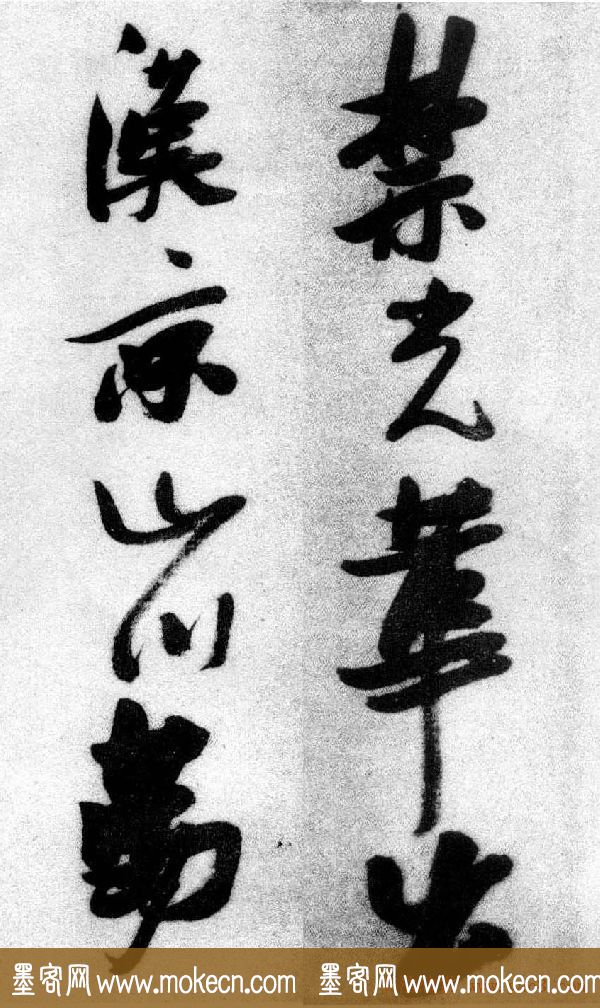 禁光華出
漢京山川勤
墨客网 www.mokecn.com 墨客网 www.mokecn.com